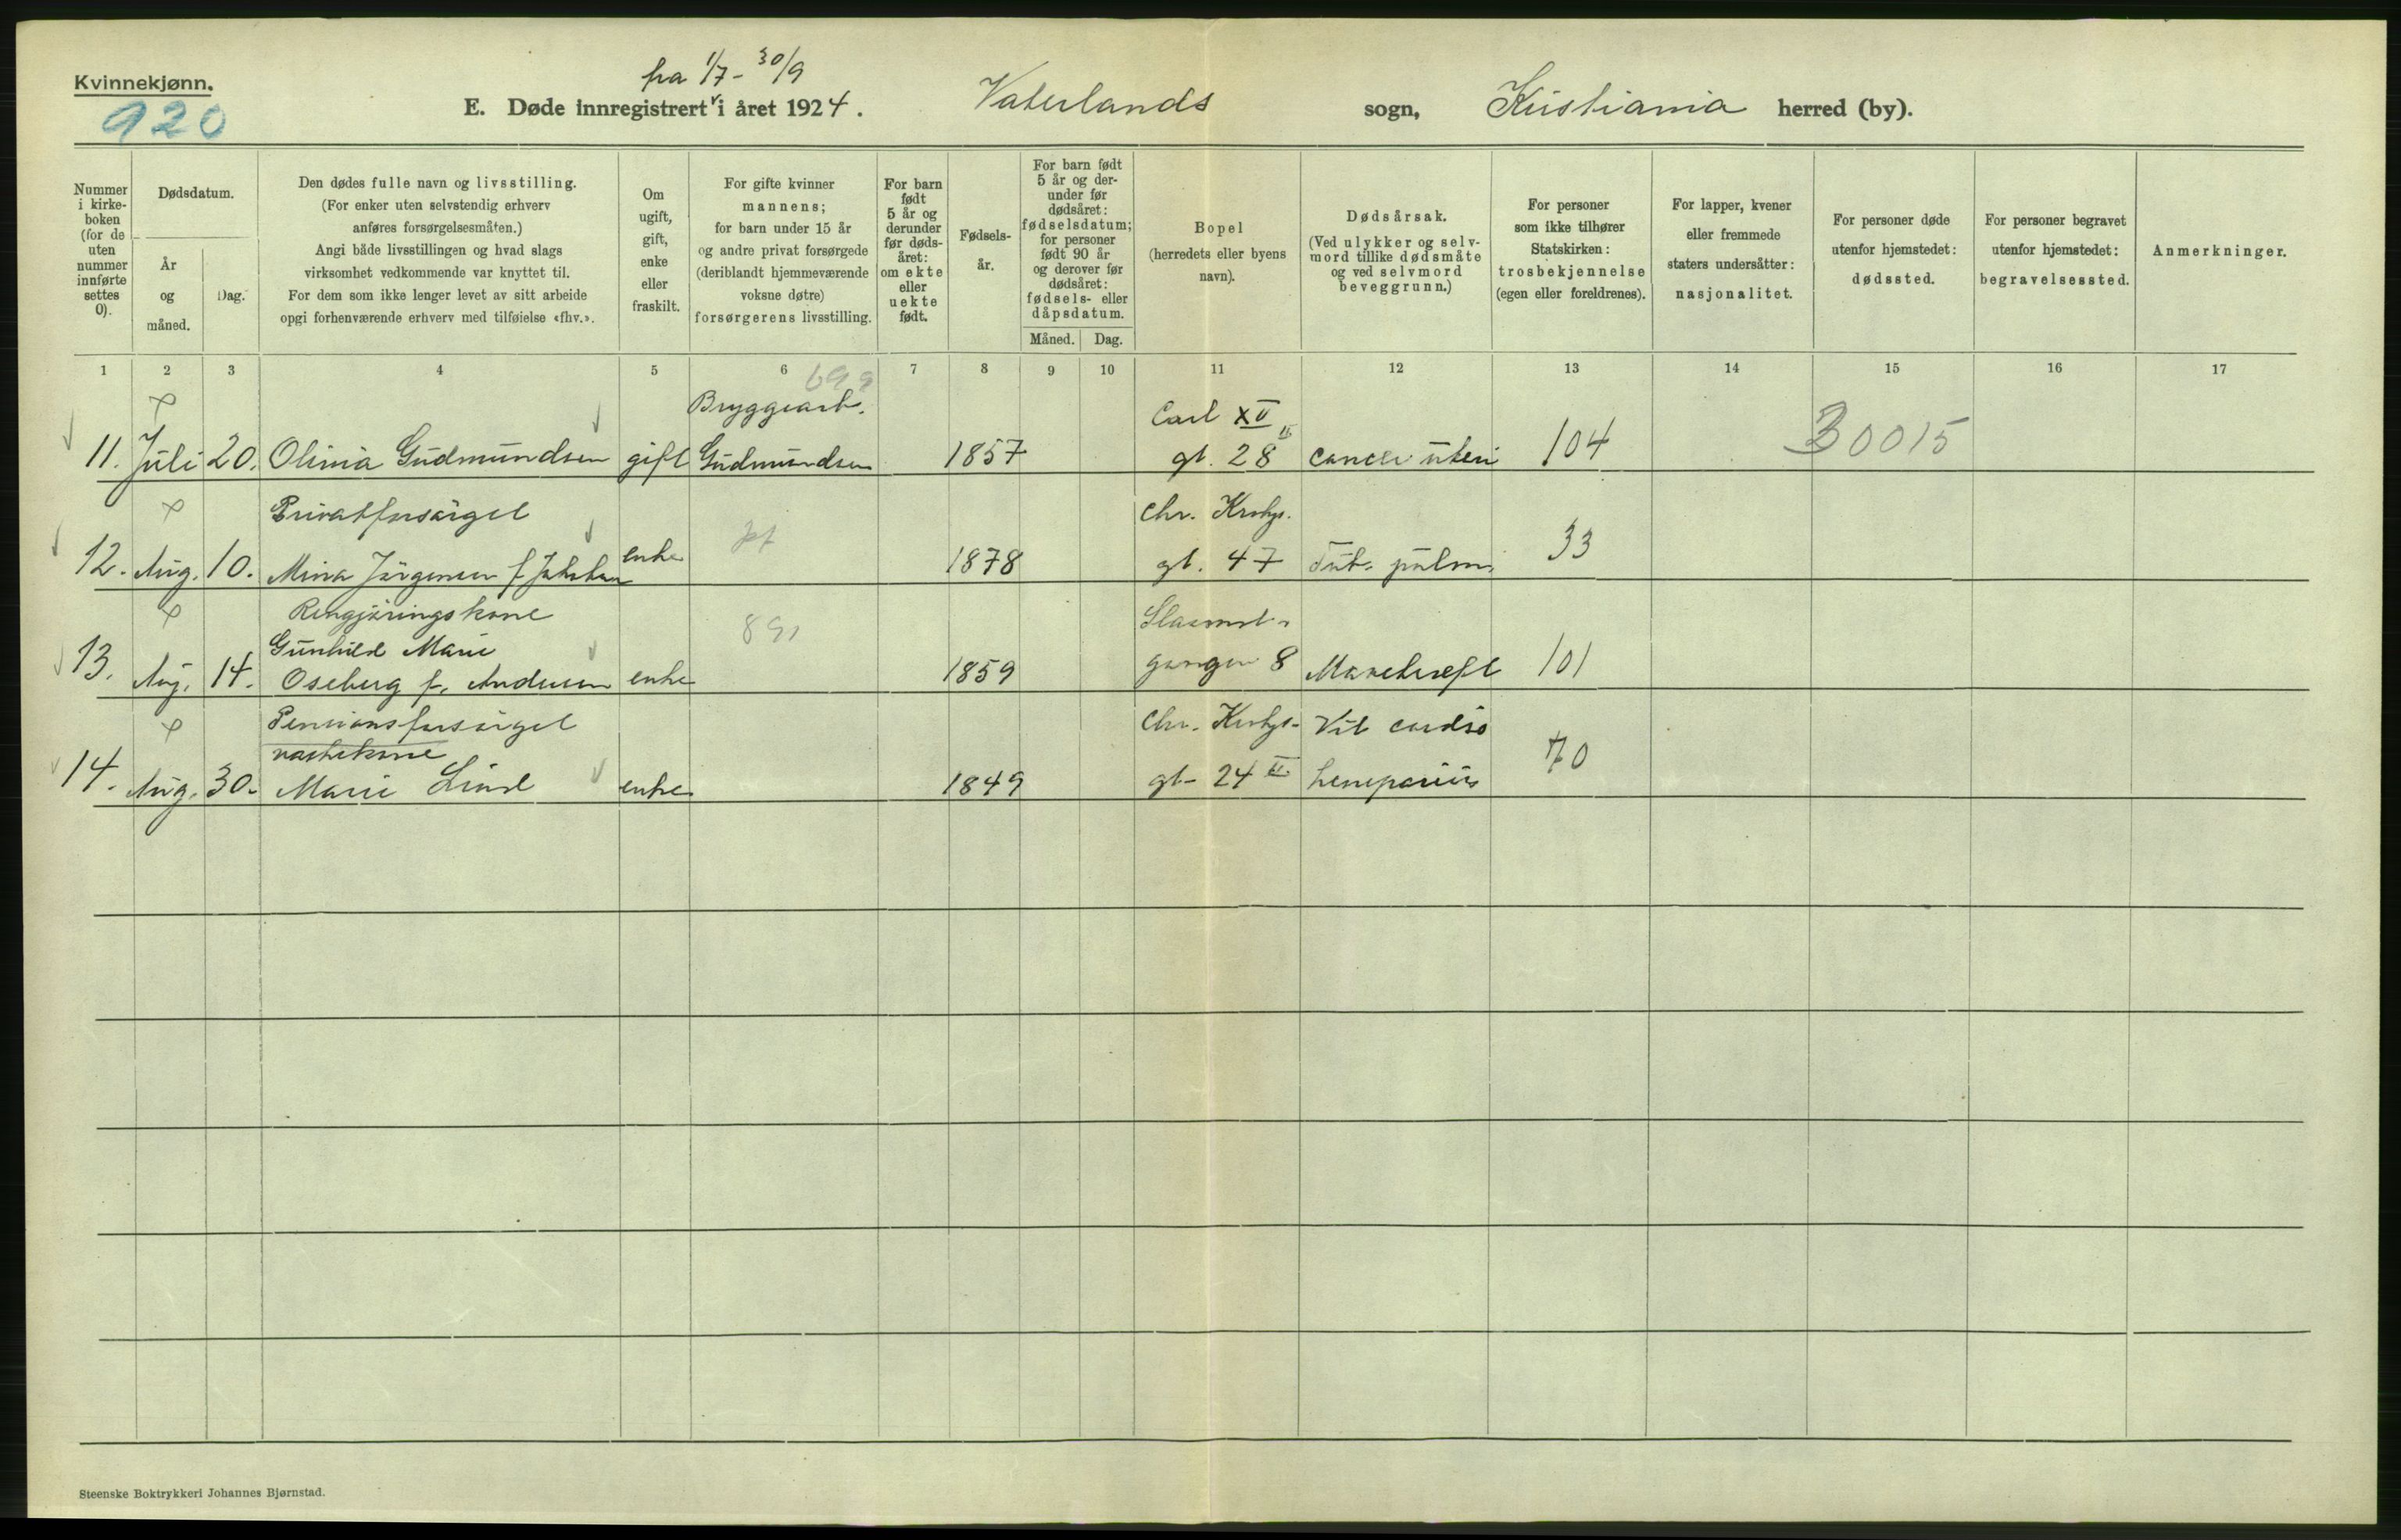 Kvinnekjønn.
920
fra 1/7 - 30/9
E. Døde innregistrert i året 1924.
Vaterlands sogn, Kristiania herred (by).
Nummer i kirkeboken (for de uten nummer innførte settes 0).
Dødsdatum.
År og måned.
Dag.
Den dødes fulle navn og livsstilling.
(For enker uten selvstendig erhverv
anføres forsørgelsesmåten.)
Angi både livsstillingen og hvad slags
virksomhet vedkommende var knyttet til.
For dem som ikke lenger levet av sitt arbeide
opgi forhenværende erhverv med tilføielse «fhv.».
Om ugift, gift, enke eller fraskilt.
For gifte kvinner
mannens;
for barn under 15 år
og andre privat forsørgede
(deriblandt hjemmeværende
voksne døtre)
forsørgerens livsstilling.
For barn født 5 år og derunder før dødsåret: om ekte eller uekte født.
Fødselsår.
For barn født 5 år og derunder før dødsåret: fødselsdatum; for personer født 90 år og derover før dødsåret: fødsels- eller dåpsdatum.
Måned.
Dag.
Bopel
(herredets eller byens
navn).
Dødsårsak.
(Ved ulykker og selvmord tillike dødsmåte
og ved selvmord
beveggrunn.)
For personer
som ikke tilhører
Statskirken:
trosbekjennelse
(egen eller foreldrenes).
For lapper, kvener
eller fremmede
staters undersåtter:
nasjonalitet.
For personer døde
utenfor hjemstedet:
dødssted.
For personer begravet
utenfor hjemstedet:
begravelsessted.
Anmerkninger.
1 2 3 4 5 6 7 8 9 10 11 12 13 14 15 16 17
699
Bryggearb. Carl XII
11. Juli 20. Olivia Gudmundsen gift Gudmundsen 1857 gt. 28 II cancer uteri 104 30015
Privatforsørget Chr. Krohgs.
12. Aug. 10. Mina Jørgensen f. Jakobsen enke 1878 gt. 47 Tub. pulm. 33
Rengjøringskone
Gunhild Marie 891
13. Aug. 14. Oseberg f. Andersen enke 1859 gangen 8 101
Pensionsforsørget Chr. Krohgs- Vit cordis
vaskekone
14. Aug. 30. Marie Lind enke 1849 gt- 24 70
Steenske Boktrykkeri Johannes Bjørnstad.